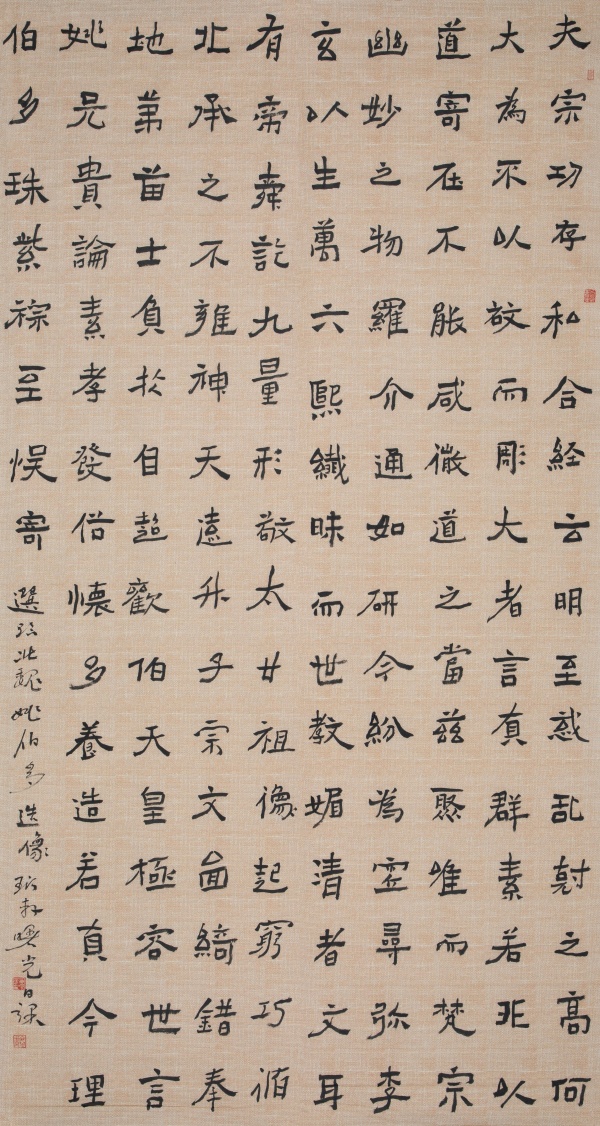 夫宗功存和合経云明至惑乱尉之高何
大為不以敢而彫大者言真群素若非以
道寄在不能咸徹道之當兹聚唯而梵宗
幽妙之物羅介通如研今紛為空尋弥李
玄以生萬六熙纖昧而世教媚清者文耳
有帝舜訖九量形敬太廿祖像起窮巧循
北承之不雍神天遠升子宗文面綺錯奉
地弟苗士負於自超歡伯天皇極容世言
姚兄貴論素孝發俗懷多養造若真今理
伯多珠紫綜至悮寄
選臨北魏姚伯多造像 光日課